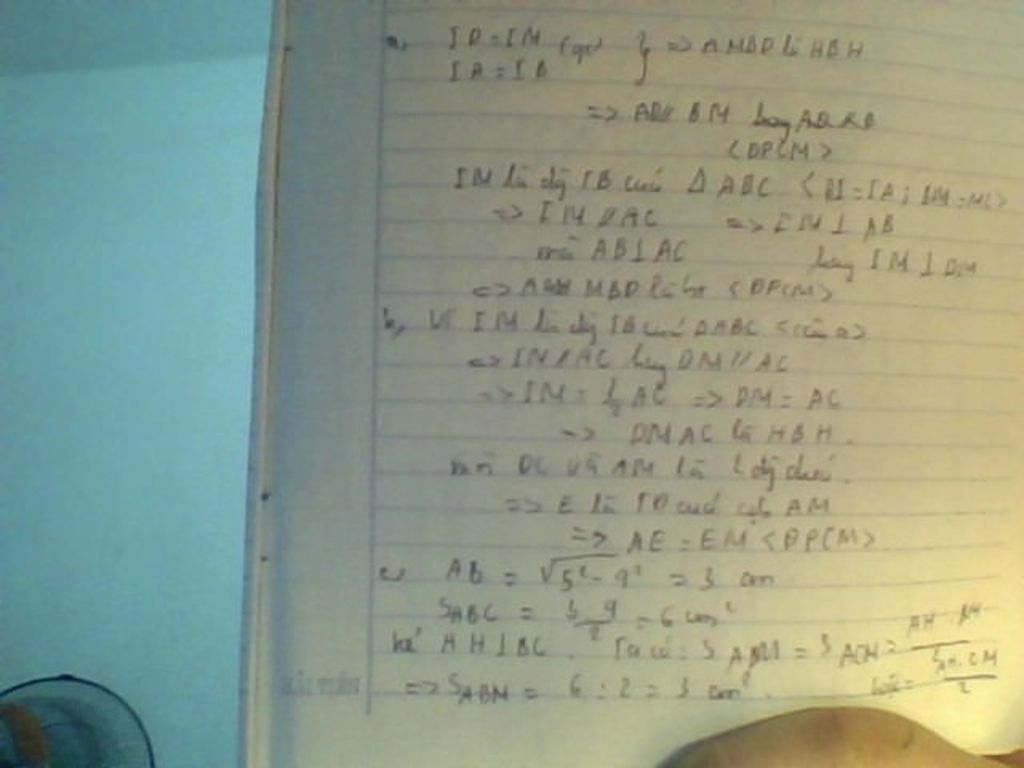 a, ID = IM (gt) } => AMBD là HBH
IA = IB
=> AD // BM hay AD //
<ĐPCM>
IM là đg TB của Δ ABC <BI = IA; BM = MC>
=> IM // AC => IM ⊥ AB
mà AB ⊥ AC hay IM ⊥ DM
=> MBD là <ĐPCM>
b, Vì IM là đg TB của ΔABC <câu a>
=> IM // AC hay DM // AC
=> IM = 1/2 AC => DM = AC
=> DMAC là HBH.
mà DC và AM là 2 đg chéo.
=> E là TĐ của AM
=> AE = EM <ĐPCM>
c, AB = √5² - 4² = 3 cm
S ABC = 3.4/2 = 6 cm²
kẻ AH ⊥ BC. Ta có: S ABM = S ACM = AH.
AH.CM/2
=> S ABM = 6 : 2 = 3 cm².
HẢI TIẾN